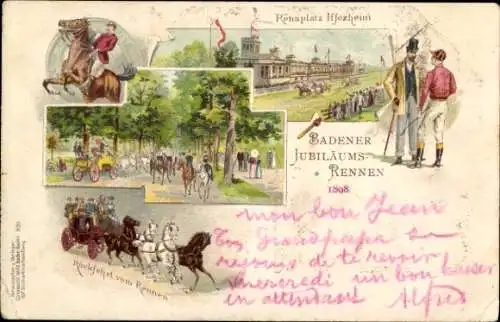 Rennplatz Iffezheim
BADENER
JUBILÄUMS-
RENNEN
1898.
mon bon Jean
Ton Grandpapa se
de te revoir,
mercredi un bon baiser
en attendant Alfred
Rückfahrt vom Rennen